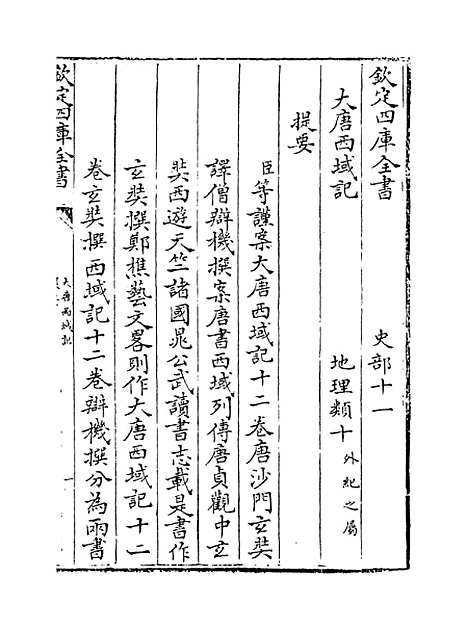 欽定四庫全書 史部十一
大唐西域記 地理類十外紀之屬
提要
臣等謹案大唐西域記十二卷唐沙門玄奘
譯僧辯機撰案唐書西域列傳唐貞觀中玄
奘西遊天竺諸國晁公武讀書志載是書作
玄奘撰鄭樵藝文畧則作大唐西域記十二
卷玄奘撰西域記十二卷辯機撰分為兩書
欽定四庫全書
大唐西域記
一